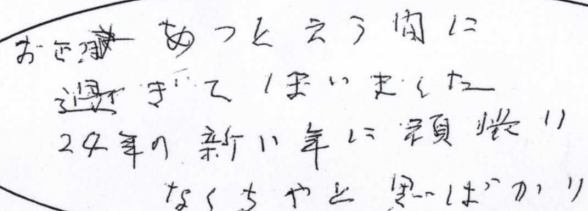 お正月 あっと云う間に
過ぎてしまいました
24年の新い年に頑張り
なくちゃと思いばかり